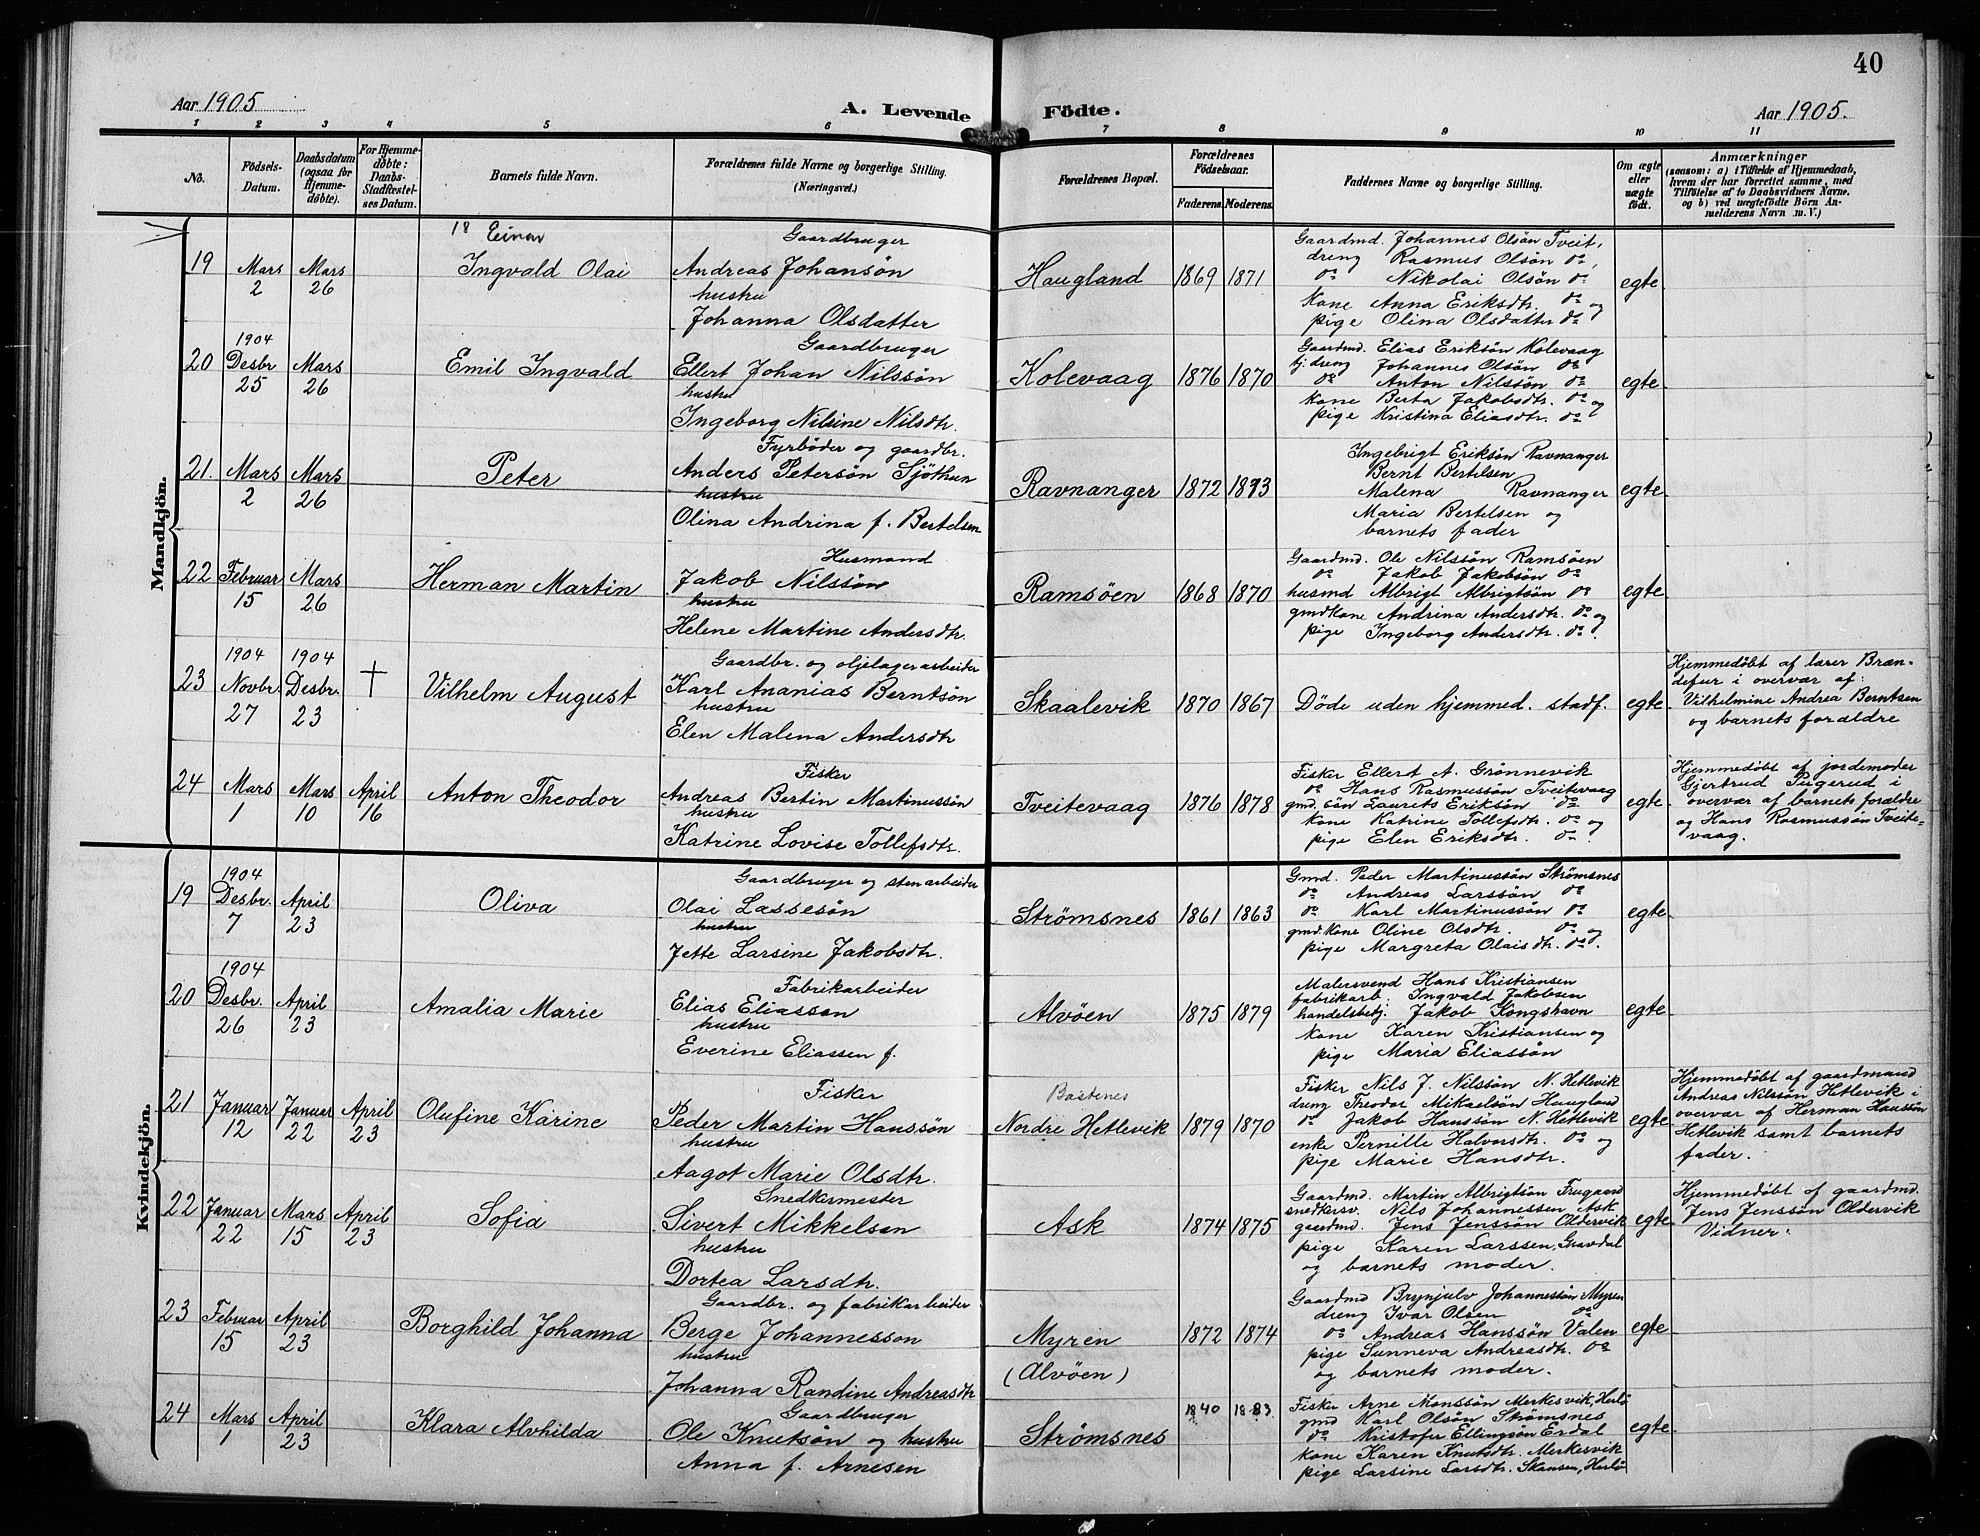 40
Aar 1905
A. Levende Födte.
Aar 1905.
1 2 3 4 5 6 7 8 9 10 11
No.
Födsels-Datum.
Daabsdatum (ogsaa for Hjemmedöbte).
For Hjemmedöbte: Daabs-Stadfæstelses Datum.
Barnets fulde Navn.
Forældrenes fulde Navne og borgerlige Stilling. (Næringsvei.)
Forældrenes Bopæl.
Forældrenes Födselsaar.
Faderens. Moderens.
Faddernes Navne og borgerlige Stilling.
Om ægte eller uægte födt.
Anmærkninger
(saasom: a) i Tilfælde af Hjemmedaab, hvem der har forrettet samme, med Tilföielse af to Daabsvidners Navne, og b) ved uægtefödte Börn Anmelderens Navn m. V.)
Mandkjön.
18 Einar
19 Mars 2 Mars 26 Ingvald Olai
Gaardbruger
Andreas Johansøn
hustru
Johanna Olsdatter
Haugland 1869 1871
Gaardmd. Johannes Olsøn Tveit,
dreng Rasmus Olsøn do,
do Nikolai Olsøn do
kone Anna Eriksdtr. do og
pige Olina Olsdatter do
egte
20 1904 Desbr 25 Mars 26 Emil Ingvald
Gaardbruger
Ellert Johan Nilssøn
hustru
Ingeborg Nilsine Nilsdtr.
Kolevaag 1876 1870
Gaardmd. Elias Eriksøn Kolevaag
tj. dreng Johannes Olsøn do
do Anton Nilssøn do
kone Berta Jakobsdtr. do og
pige Kristina Eliasdtr. do
egte
21. Mars 2 Mars 26 Peter
Fyrbøder og gaardbr.
Anders Petersøn Sjøthun
hustru
Olina Andrina f. Bertelsen
Ravnanger 1872 1873
Ingebrigt Eriksøn Ravnanger
Bernt Bertelsen
Malena Ravnanger
Maria Bertelsen og
barnets fader
egte
22 Februar 15 Mars 26 Herman Martin
Husmand
Jakob Nilssøn
hustru
Helene Martine Andersdtr.
Ramsøen 1868 1870
Gaardmd. Ole Nilssøn Ramsøen
do Jakob Jakobsøn do
husmd Albrigt Albrigtsøn do
gmdkone Andrina Andersdtr. do og
pige Ingeborg Andersdtr. do.
egte
23 1904 Novbr. 27 1904 Desbr. 23 † Vilhelm August
Gaardbr. og oljelagerarbeider
Karl Ananias Berntsøn
hustru
Elen Malena Andersdtr
Skaalevik 1870 1867
Døde uden hjemmed. stadf.
egte
Hjemmedøbt af lærer Bræn-
defur i overvær af:
Vilhelmine Andrea Berntsen
og barnets forældre
24 Mars 1 Mars 10 April 16 Anton Theodor
Fisker
Andreas Bertin Martinussøn
hustru
Katrine Lovise Tollefsdtr.
Tveitevaag 1876 1878
Fisker Ellert A. Grønnevik
do Hans Rasmussøn Tveitevaag
gmd. søn Laurets Eriksøn do
kone Katrine Tollefsdtr. do og
pige Elen Eriksdtr. do.
egte
Hjemmedøbt af jordemoder
Gjertrud Pugerud i
overvær af barnets forældre
og Hans Rasmussøn Tveite-
vaag.
Kvindekjön.
19 1904 Desbr. 7 April 23 Oliva
Gaardbruger og stenarbeider
Olai Lassesøn
hustru
Jette Larsine Jakobsdtr.
Strømsnes 1861 1863
Gmd. Peder Martinussøn Strømsnes
do Andreas Larssøn do
do Karl Martinussøn do
gmd. kone Oline Olsdtr. do og
pige Margreta Olaisdtr. do.
egte
20 1904 Desbr. 26 April 23 Amalia Marie
Fabrikarbeider
Elias Eliasson
hustru
Everine Eliassen f.
Alvøen 1875 1879
Malersvend Hans Kristiansen
fabrikarb. Ingvald Jakobsen
handelsbetj. Jakob Kongshavn
kone Karen Kristiansen og
pige Maria Eliassøn
egte
21 Januar 12 Januar 22 April 23 Olufine Karine
Fisker
Peder Martin Hanssøn
hustru
Aagot Marie Olsdtr.
Bastenes
Nordre Hetlevik 1879 1870
Fisker Nils J. Nilssøn N. Hetlevik
dreng Theodor Mikaelsøn Haugland
do Jakob Hanssøn N. Hetlevik
enke Pernille Halvorsdtr. do og
pige Marie Hansdtr.
egte
Hjemmedøbt af gaardmand
Andreas Nilssøn Hetlevik i
overvær af Herman Hanssøn
Hetlevik samt barnets
fader.
22 Januar 22 Mars 15 April 23 Sofia
Snedkermester
Sivert Mikkelson
hustru
Dortea Larsdtr.
Ask 1874 1875
Gaardmd. Martin Albrigtsøn Trugaard
snedkersv. Nils Johannessen Ask
gaardmd. Jens Jenssøn Oldervik
pige Karen Larssen, Gravdal
og barnets moder.
egte
Hjemmedøbt af gaardmd.
Jens Jenssøn Oldervik
Vidner:
23 Februar 15 April 23 Borghild Johanna
Gaardbr. og fabrikarbeider
Berge Johannesson
hustru
Johanna Randine Andreasdtr
Myren
(Alvøen)
1872 1874
Gaardmd Brynjulv Johannesøn Myren
dreng Ivar Olsen do
do Andreas Hanssøn Valen
pige Sunneva Andreasdtr. do
og barnets moder.
egte
24 Mars 1 April 23 Klara Alvhilda
Gaardbruger
Ole Knutsøn og hustru
Anna f. Arnesen
Strømsnes 1840 1883
Fisker Arne Monssøn Merkesvik, Herlø
gmd Karl Olsøn Strømsnes
do Kristofer Ellingsøn Erdal
kone Karen Knutsdtr. Merkesvik
pige Larsine Larsdtr. Skansen, Herlø
egte